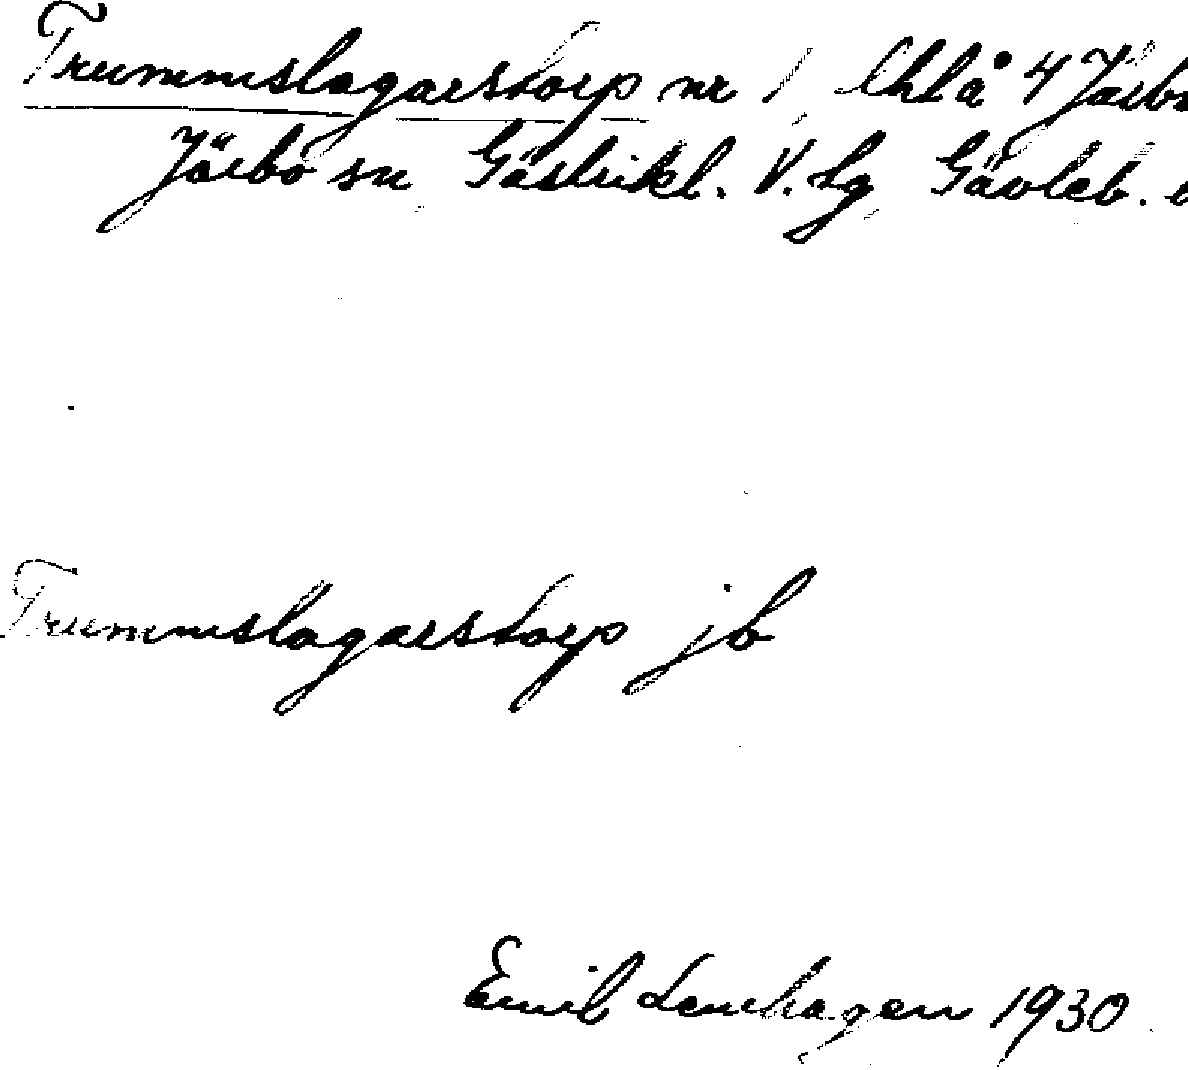 Trummslagarstorp nr 1 lhlå 4 Järbo
Järbo sn Gästrikl. V. Lg Gävleb.
Trummslagarstorp jb
Emil Lenhagen 1930